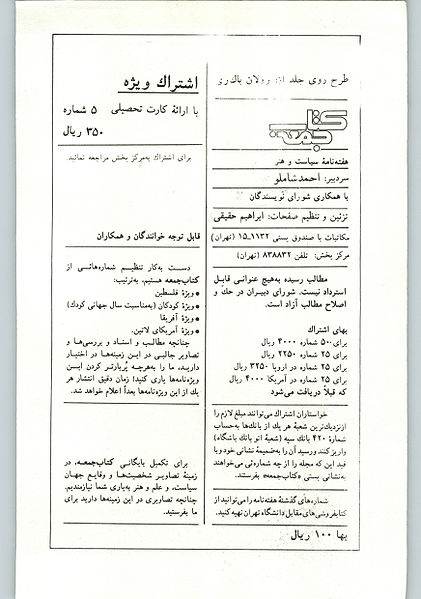 طرح روی جلد از: رولان باک‌ری
کتاب جمعه
هفته‌نامهٔ سیاست و هنر
سردبیر: احمد شاملو
با همکاری شورای نویسندگان
تزئین و تنظیم صفحات: ابراهیم حقیقی
مکاتبات با صندوق پستی ۱۱۳۲-۱۵ (تهران)
مرکز بخش: تلفن ۸۳۸۸۳۲ (تهران)
مطالب رسیده به‌هیچ عنوانی قابل
استرداد نیست. شورای دبیران در حک و
اصلاح مطالب آزاد است.
بهای اشتراك
برای ۵۰ شماره ۴۰۰۰ ریال
برای ۲۵ شماره ۲۲۵۰ ریال
برای ۲۵ شماره در اروپا ۳۲۵۰ ریال
برای ۲۵ شماره در آمریکا ۴۰۰۰ ریال
که قبلاً دریافت می‌شود
خواستاران اشتراك می‌توانند مبلغ لازم را
از نزدیك‌ترین شعبهٔ هر یك از بانك‌ها به‌حساب
شمارهٔ ۴۲۰ بانك سپه (شعبهٔ اتو بانك باشگاه)
واریز کنند و رسید آن را به‌ضمیمهٔ نشانی خود و با
قید این که مجله را از چه شماره‌ئی می‌خواهند
به‌نشانی پستی «کتاب‌جمعه» بفرستند.
شماره‌های گذشتهٔ هفته‌نامه را می‌توانید از
کتابفروشی‌های مقابل دانشگاه تهران تهیه کنید.
بها ۱۰۰ ریال
اشتراك ویژه
با ارائهٔ کارت تحصیلی ۵ شماره
۳۵۰ ریال
برای اشتراك به‌مرکز بخش مراجعه نمائید
قابل توجه خوانندگان و همکاران
دست به‌کار تنظیم شماره‌هائی از
کتاب‌جمعه هستیم، به‌ترتیب:
• ویژهٔ فلسطین
• ویژهٔ کودکان (به‌مناسبت سال جهانی کودك)
• ویژهٔ آفریقا
• ویژهٔ آمریکای لاتین.
چنانچه مطالب و اسناد و بررسی‌ها و
تصاویر جالبی در این زمینه‌ها در اختیار
دارید، ما را به‌هرچه پُربارتر کردن این
ویژه‌نامه‌ها یاری کنید! زمان دقیق انتشار هر
یك از این ویژه‌نامه‌ها بعداً اعلام خواهد شد.
برای تکمیل بایگانی کتاب‌جمعه، در
زمینهٔ تصاویر شخصیت‌ها و وقایع جهان
سیاست، و علم و هنر به‌یاری شما نیازمندیم.
چنانچه تصاویری در این زمینه‌ها دارید برای
ما بفرستید.